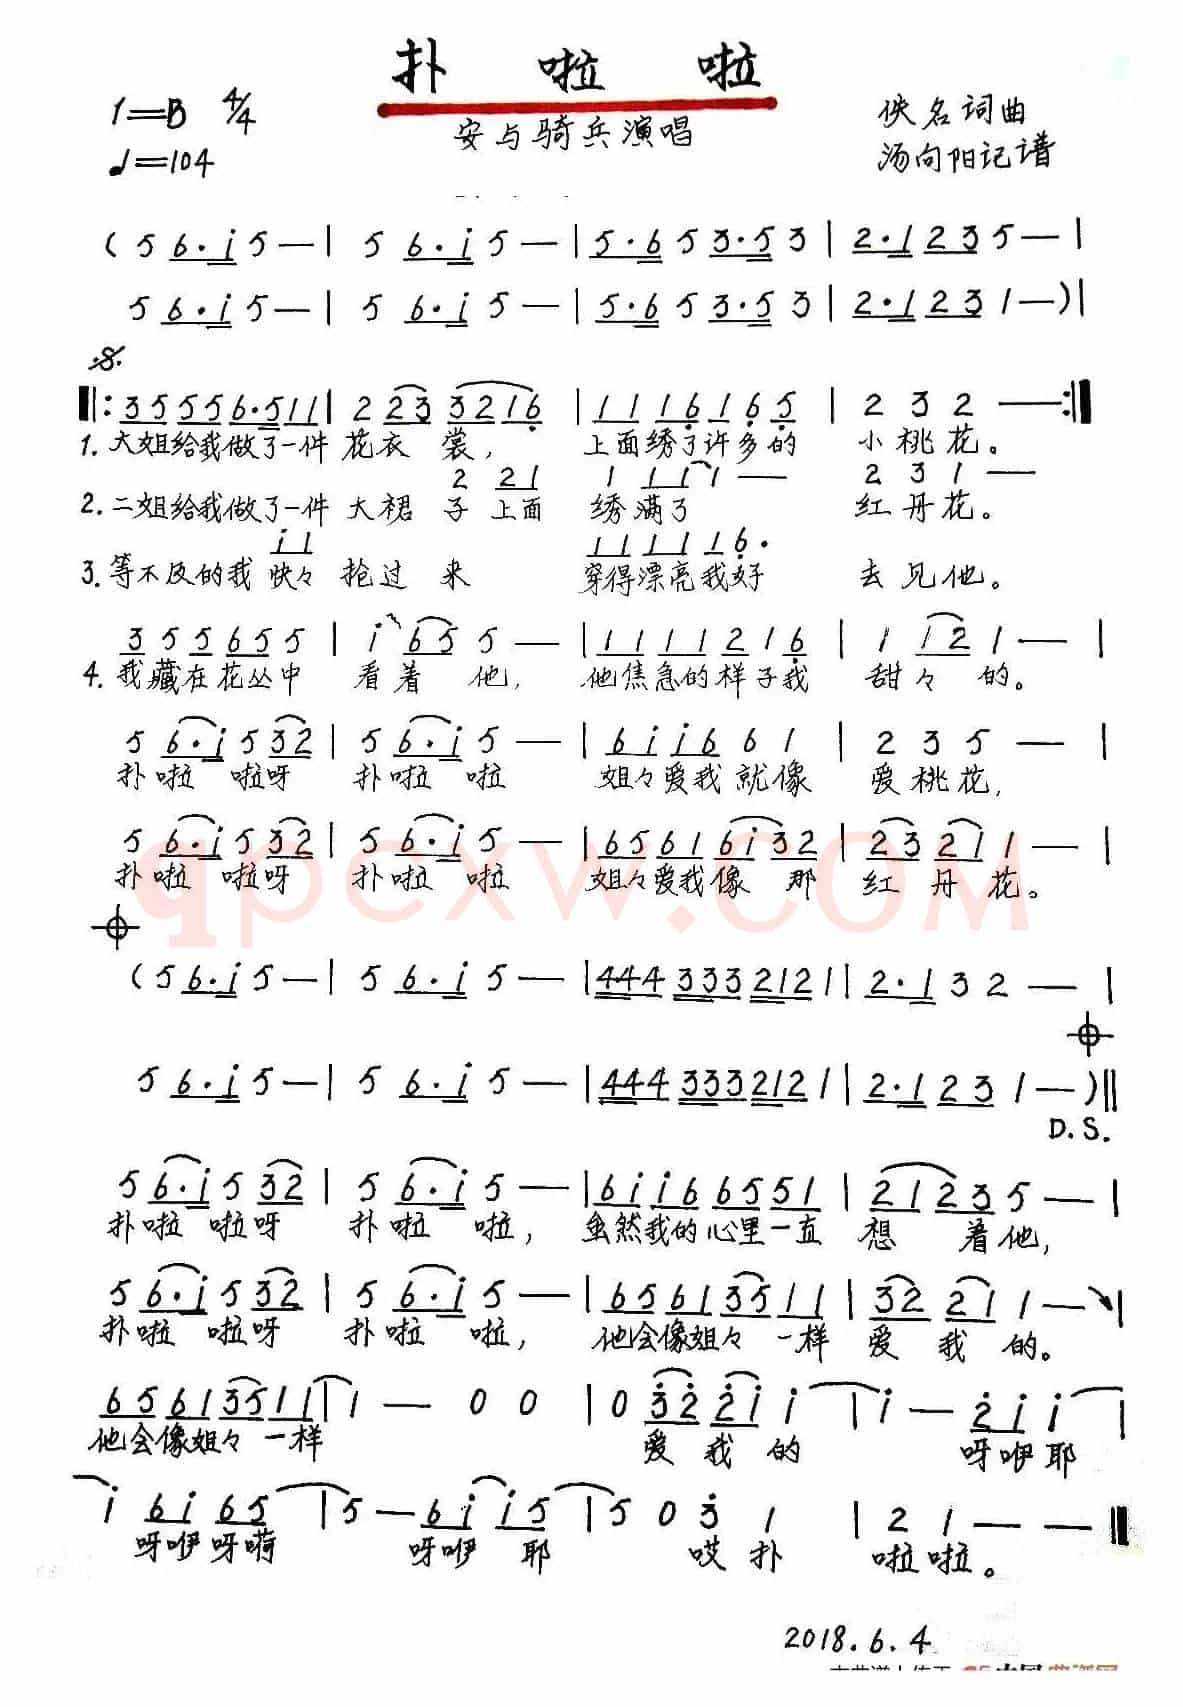 扑啦啦
1=B 4/4
♩=104
安与骑兵演唱
佚名词曲
汤向阳记谱
(5 6·i 5 — | 5 6·i 5 — | 5·6 5 3·5 3 | 2·1 2 3 5 — |
5 6·i 5 — | 5 6·i 5 — | 5·6 5 3·5 3 | 2·1 2 3 1 — )|
3 5 5 5 6·5 1 1 | 2 2 3 3 2 1 6 | 1 1 1 6 1 6 5 | 2 3 2 — :|
1. 大姐给我做了一件花衣裳, 上面绣了许多的 小桃花。
2 2 1 1 1 1 1 — 2 3 1 —
2. 二姐给我做了一件大裙子上面 绣满了 红丹花。
i 1 1 1 1 1 1 6·
3. 等不及的我快々抢过来 穿得漂亮我好 去见他。
3 5 5 6 5 5 | i 6 5 5 — | 1 1 1 1 2 1 6 | 1 1 2 1 — |
4. 我藏在花丛中 看着他, 他焦急的样子我 甜々的。
5 6·i 5 3 2 | 5 6·i 5 — | 6 i i 6 6 1 | 2 3 5 — |
扑啦啦呀 扑啦啦 姐々爱我就像 爱桃花,
5 6·i 5 3 2 | 5 6·i 5 — | 6 5 6 1 6 i 3 2 | 2 3 2 1 1 — |
扑啦啦呀 扑啦啦 姐々爱我像那 红丹花。
(5 6·i 5 — | 5 6·i 5 — | 4 4 4 3 3 3 2 1 2 1 | 2·1 3 2 — |
5 6·i 5 — | 5 6·i 5 — | 4 4 4 3 3 3 2 1 2 1 | 2·1 2 3 1 — )||
D.S.
5 6·i 5 3 2 | 5 6·i 5 — | 6 i i 6 6 5 5 1 | 2 1 2 3 5 — |
扑啦啦呀 扑啦啦, 虽然我的心里一直 想着他,
5 6·i 5 3 2 | 5 6·i 5 — | 6 5 6 1 3 5 1 1 | 3 2 2 1 1 — |
扑啦啦呀 扑啦啦, 他会像姐々一样 爱我的。
6 5 6 1 3 5 1 1 | 1 — 0 0 | 0 3 2 2 i i | i — 2 i i |
他会像姐々一样 爱我的 呀咿耶
i 6 i 6 5 | 5 — 6 i i 5 | 5 0 3 1 | 2 1 — — ||
呀咿呀嗬 呀咿耶 哎扑 啦啦。
2018.6.4
qpcxw.COM